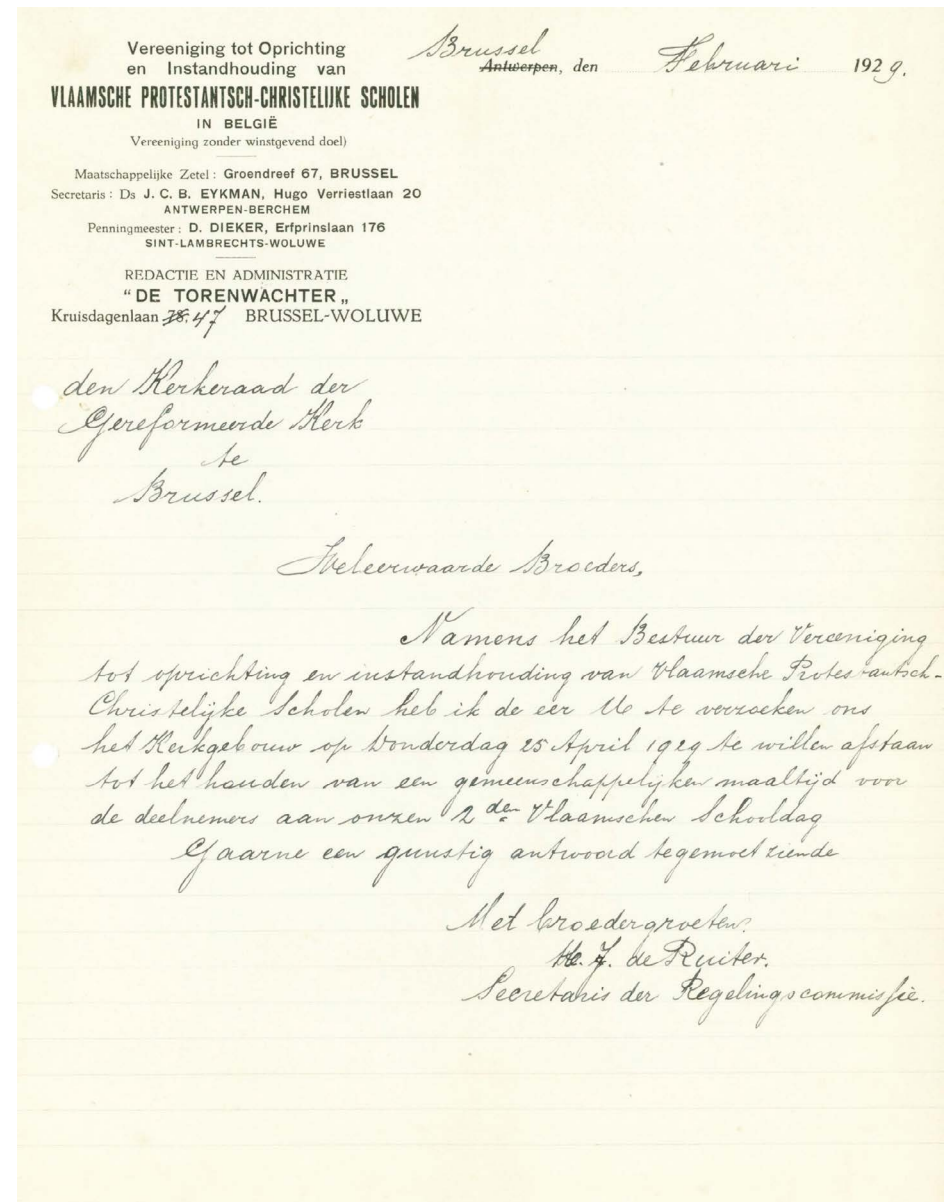 Vereeniging tot Oprichting
en Instandhouding van
VLAAMSCHE PROTESTANTSCH-CHRISTELIJKE SCHOLEN
IN BELGIË
Vereeniging zonder winstgevend doel)
Maatschappelijke Zetel : Groendreef 67, BRUSSEL
Secretaris : Ds J. C. B. EYKMAN, Hugo Verriestlaan 20
ANTWERPEN-BERCHEM
Penningmeester : D. DIEKER, Erfprinslaan 176
SINT-LAMBRECHTS-WOLUWE
REDACTIE EN ADMINISTRATIE
“ DE TORENWACHTER „
Kruisdagenlaan 47 BRUSSEL-WOLUWE
Brussel
Antwerpen, den Februari 1929.
den Kerkeraad der
Gereformeerde Kerk
te
Brussel.
Weleerwaarde Broeders,
Namens het Bestuur der Vereeniging
tot oprichting en instandhouding van Vlaamsche Protestantsch-
Christelijke Scholen heb ik de eer U te verzoeken ons
het Kerkgebouw op Donderdag 25 April 1929 te willen afstaan
tot het houden van een gemeenschappelijken maaltijd voor
de deelnemers aan onzen 2den Vlaamschen Schooldag
Gaarne een gunstig antwoord tegemoet ziende
Met broedergroeten.
J. de Ruiter.
Secretaris der Regelingscommissie.